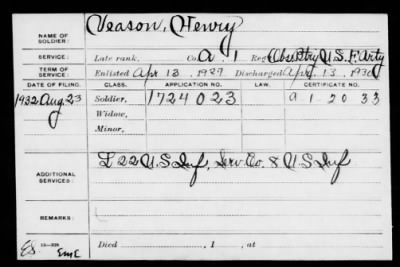 NAME OF SOLDIER: Veason, Henry
SERVICE: Late rank, Co. A. 1 Reg't Obs. Btry U.S.F. Arty
TERM OF SERVICE: Enlisted Apr 13, 1927 Discharged Apr. 13, 1930
DATE OF FILING. CLASS. APPLICATION NO. LAW. CERTIFICATE NO.
1932 Aug. 23 Soldier, 1724023 912033
Widow,
Minor,
ADDITIONAL SERVICES: L 22 U.S. Inf, Serv. Co. 8 U S Inf
REMARKS:
3—328
Died , 1 , at